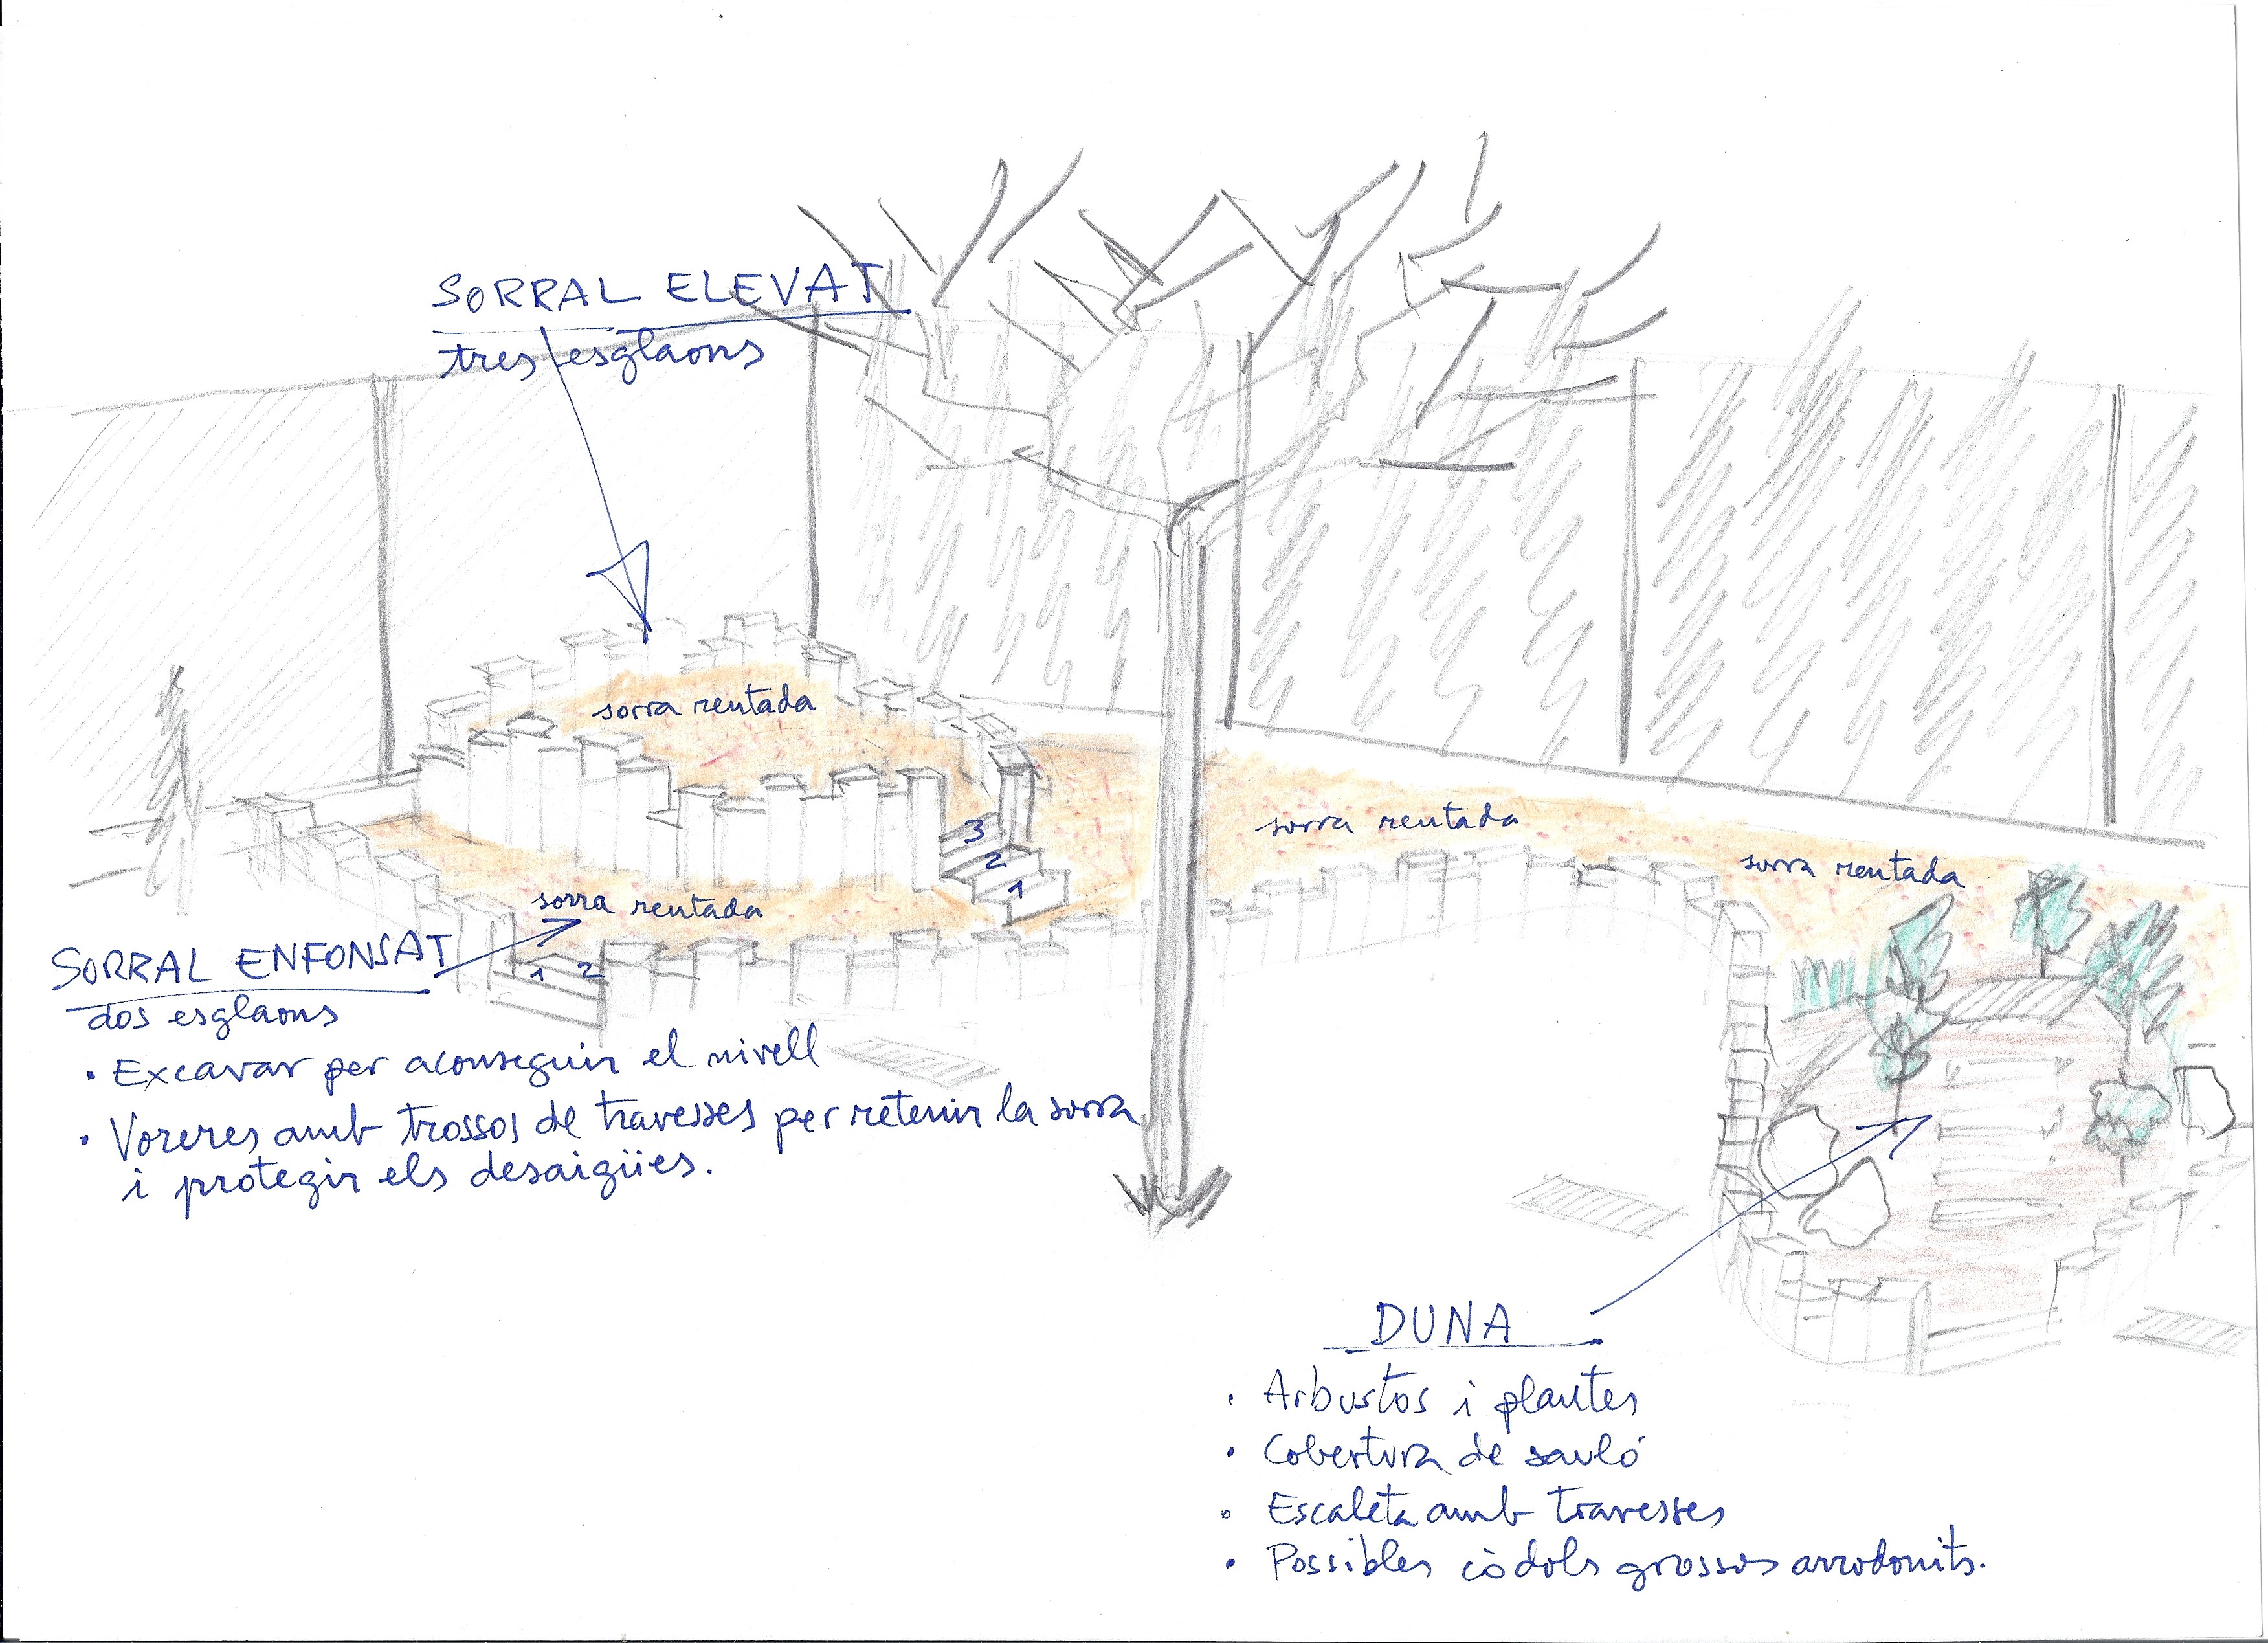 SORRAL ELEVAT
tres esglaons
sorra rentada
sorra rentada
sorra rentada
3
2
1
sorra rentada
SORRAL ENFONSAT
1 2
dos esglaons
• Excavar per aconseguir el nivell
• Voreres amb trossos de travesses per retenir la sorra
i protegir els desaigües.
DUNA
• Arbustos i plantes
• Cobertura de sauló
• Escaleta amb travesses
• Possibles còdols grossos arrodonits.